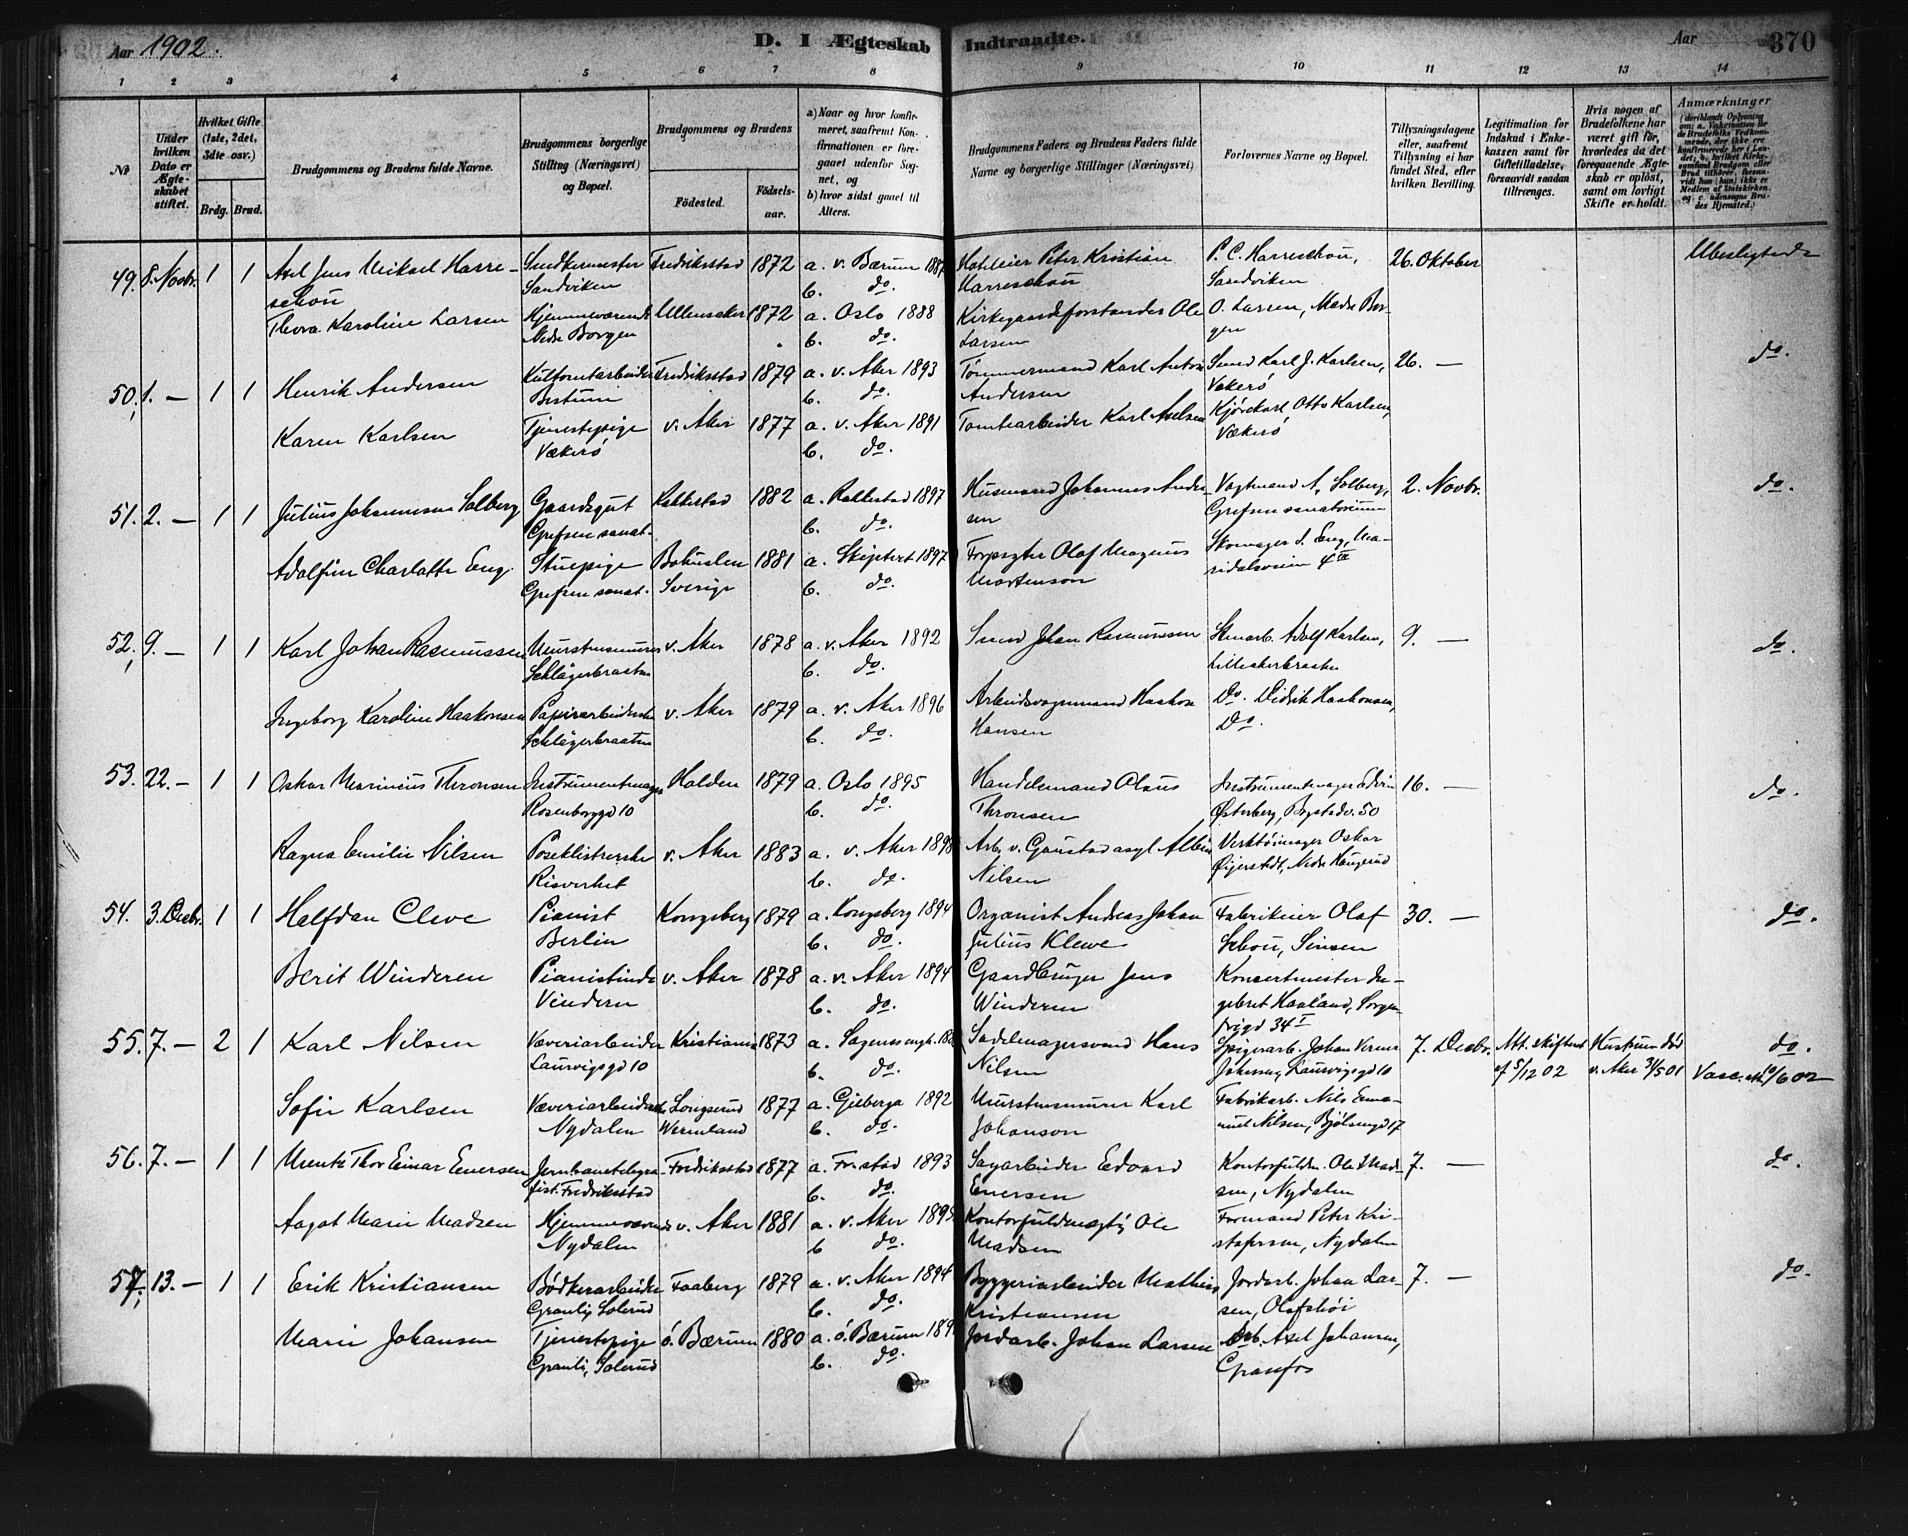 Aar 1902.
D. I Ægteskab Indtraadte.
Aar
370
1 2 3 4 5 6 7 8 9 10 11 12 13 14
No
Under hvilken Dato er Ægteskabet stiftet.
Hvilket Gifte (1ste, 2det, 3die osv.)
Brdg. Brud.
Brudgommens og Brudens fulde Navne.
Brudgommens borgerlige Stilling (Næringsvei) og Bopæl.
Brudgommens og Brudens
Fødested.
Fødselsaar.
a) Naar og hvor konfirmeret, saafremt Konfirmationen er foregaaet udenfor Sognet, og
b) hvor sidst gaaet til Alters.
Brudgommens Faders og Brudens Faders fulde Navne og borgerlige Stillinger (Næringsvei)
Forlovernes Navne og Bopæl.
Tillysningsdagene eller, saafremt Tillysning ei har fundet Sted, efter hvilken Bevilling.
Legitimation for Indskud i Enkekassen samt for Giftetilladelse, forsaavidt saadan tiltrænges.
Hvis nogen af Brudefolkene har været gift før, hvorledes da det foregaaende Ægteskab er opløst, samt om lovligt Skifte er holdt.
Anmærkninger
49. 8. Novbr. 1 1 Axel Jens Mikael Harreschou Sandviken Fredriksstad 1872 a. v. Bærum 1887 b. do. Hoteleier Peter Kristian Harreschou P. C. Harreschou, Sandviken 26. Oktober Ubeslægtede
Thora Karoline Larsen Hjemmeværende Nedre Borgen Ullensaker 1872 a. Oslo 1888 b. do. Kirkegaardsforstander Ole Larsen O. Larsen, Nedre Borgen
50, 1. — 1 1 Henrik Andersen Bestum Fredriksstad 1879 a. v. Aker 1893 b. do. Tømmermand Karl Anton Andersen Smed Karl J. Karlsen, Vækerø 26. — do.
Karen Karlsen Tjenestepige Vækerø v. Aker 1877 a. v. Aker 1891 b. do. Tomtearbeider Karl Axelsen Kjørekarl Otto Karlsen, Vækerø
51. 2. — 1 1 Julius Johannesen Solberg Gaardsgut Grefsen sanat. Rakkestad 1882 a. Rakkestad 1897 b. do. Husmand Johannes Andersen Vagtmand A. Solberg, Grefsen sanatorium 2. Novbr. do.
Adolfine Charlotte Eng. Stuepige Grefsen sanat. Bohuslen Sverige 1881 a. Skiptvet 1897 b. do. Forpagter Olaf Magnus Mortenson Skomager S. Eng, Maridalsveien 4 II
52, 9. — 1 1 Karl Johan Rasmussen Schlägerbraaten v. Aker 1878 a. v. Aker 1892 b. do. Smed Johan Rasmussen Stenarb. Adolf Karlsen, Lilleakerbraaten 9. — do.
Ingeborg Karoline Haakonsen Papirarbeiderske Schlägerbraaten v. Aker 1879 a. v. Aker 1896 b. do. Arbeidsvognmand Haakon Hansen Do. Didrik Haakonsen, Do.
53. 22. — 1 1 Oskar Marinius Thronsen Instrumentmager Rosenborggd 10 Halden 1879 a. Oslo 1895 b. do. Handelsmand Olaus Thronsen Instrumentmager Edvin Østerberg, Bogstadv. 50 16. — do.
Ragna Emilie Nilsen Poseklistrerske Risverket v. Aker 1883 a. v. Aker 1898 b. do. Arb. v. Gaustad asyl Albin Nilsen Verktøimager Oskar Øijerstedt, Nedre Haugerud
54. 3. Decbr. 1 1 Halfdan Cleve Pianist Berlin Kongsberg 1879 a. Kongsberg 1894 b. do. Organist Andreas Johan Julius Klewe Fabrikeier Olaf Schou, Sinsen 30. — do.
Berit Winderen Pianistinde Vinderen v. Aker 1878 a. v. Aker 1894 b. do. Gaardbruger Jens Winderen Koncertmester Ingebret Haaland, Sorgenfrigd 34 I
55. 7. — 2 1 Karl Nilsen Væveriarbeider Laurvigsgd 10 Kristiania 1873 a. Sagenes b. do. Sadelmagersvend Hans Nilsen Spigerarb. Johan Verner Johansen, Laurvigsgd 10 7. Decbr. Att. skifteret af 5/12 02 Hustruen død v. Aker 31/5 01 do. Vacc. att. 10/6 02
Sofie Karlsen Væveriarbeiderske Nydalen Longserud Wermland 1877 a. Gilberga 1892 b. do. Murstensmurer Karl Johanson Fabrikarb. Nils Emanuel Nilsen, Bjølsengd 17
56. 7. — 1 1 Mentz Thor Einar Enersen Jernbanetelegrafist. Fredriksstad Fredriksstad 1877 a. Fr.stad 1893 b. do. Sagarbeider Edvard Enersen Kontorfuldm. Ole Madsen, Nydalen 7. — do.
Aagot Marie Madsen Hjemmeværende Nydalen v. Aker 1881 a. v. Aker 1895 b do. Kontorfuldmægtig Ole Madsen Formand Peter Kristofersen, Nydalen
57, 13. — 1 1 Erik Kristiansen Bødkerarbeider Granli, Solerud Faaberg 1879 a. v. Aker 1894 b. do. Byggeriarbeider Mathias Kristiansen Jordarb. Johan Larsen, Olafshøi 7. — do.
Marie Johansen Tjenestepige Granli, Solerud ö. Bærum 1880 a. ö. Bærum b. do. Jordarb. Johan Larsen Arb. Axel Johansen, Granfos